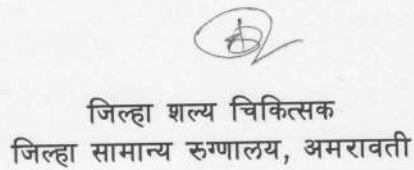 जिल्हा शल्य चिकित्सक
जिल्हा सामान्य रुग्णालय, अमरावती